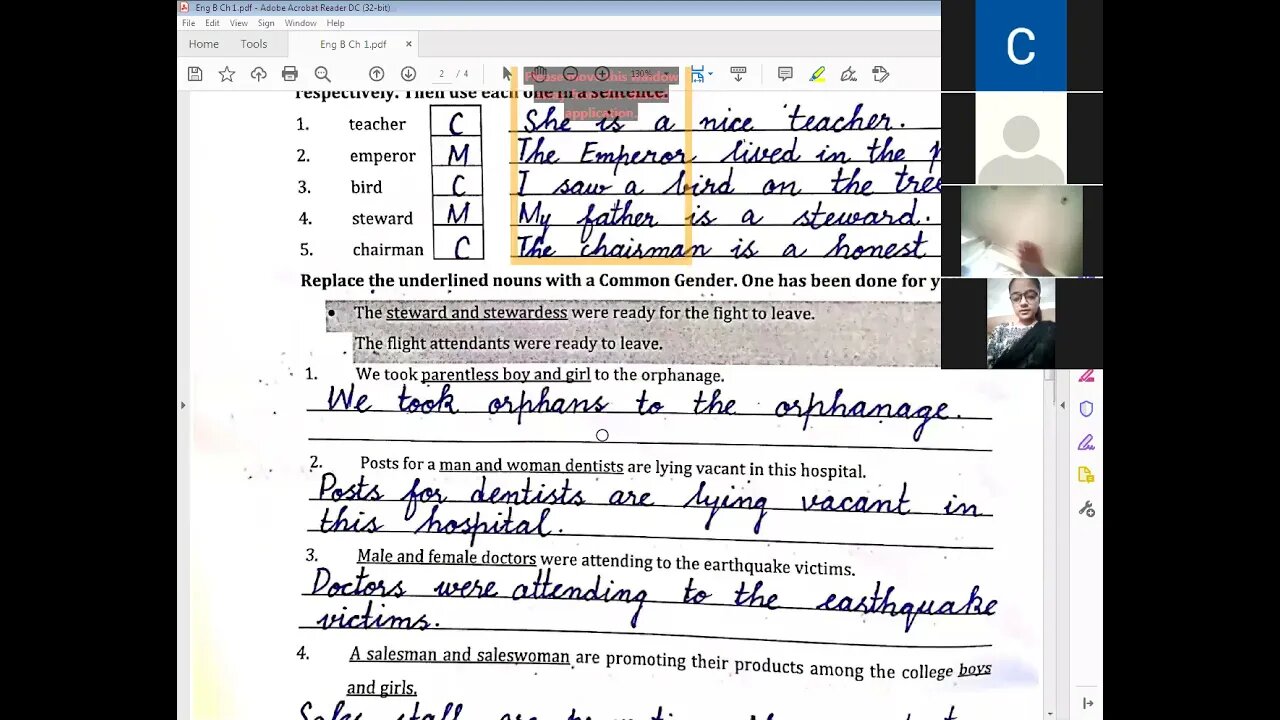 Eng B Ch 1.pdf - Adobe Acrobat Reader DC (32-bit)
File Edit View Sign Window Help
Home Tools Eng B Ch 1.pdf ×
2 / 4 130%
respectively. Then use each one in a sentence.
application.
1. teacher C She is a nice teacher.
2. emperor M The Emperor lived in the
3. bird C I saw a bird on the tree
4. steward M My father is a steward.
5. chairman C The chairman is a honest
Replace the underlined nouns with a Common Gender. One has been done for y
• The steward and stewardess were ready for the fight to leave.
The flight attendants were ready to leave.
1. We took parentless boy and girl to the orphanage.
We took orphans to the orphanage.
2. Posts for a man and woman dentists are lying vacant in this hospital.
Posts for dentists are lying vacant in
this hospital.
3. Male and female doctors were attending to the earthquake victims.
Doctors were attending to the earthquake
victims.
4. A salesman and saleswoman are promoting their products among the college boys
and girls.
C